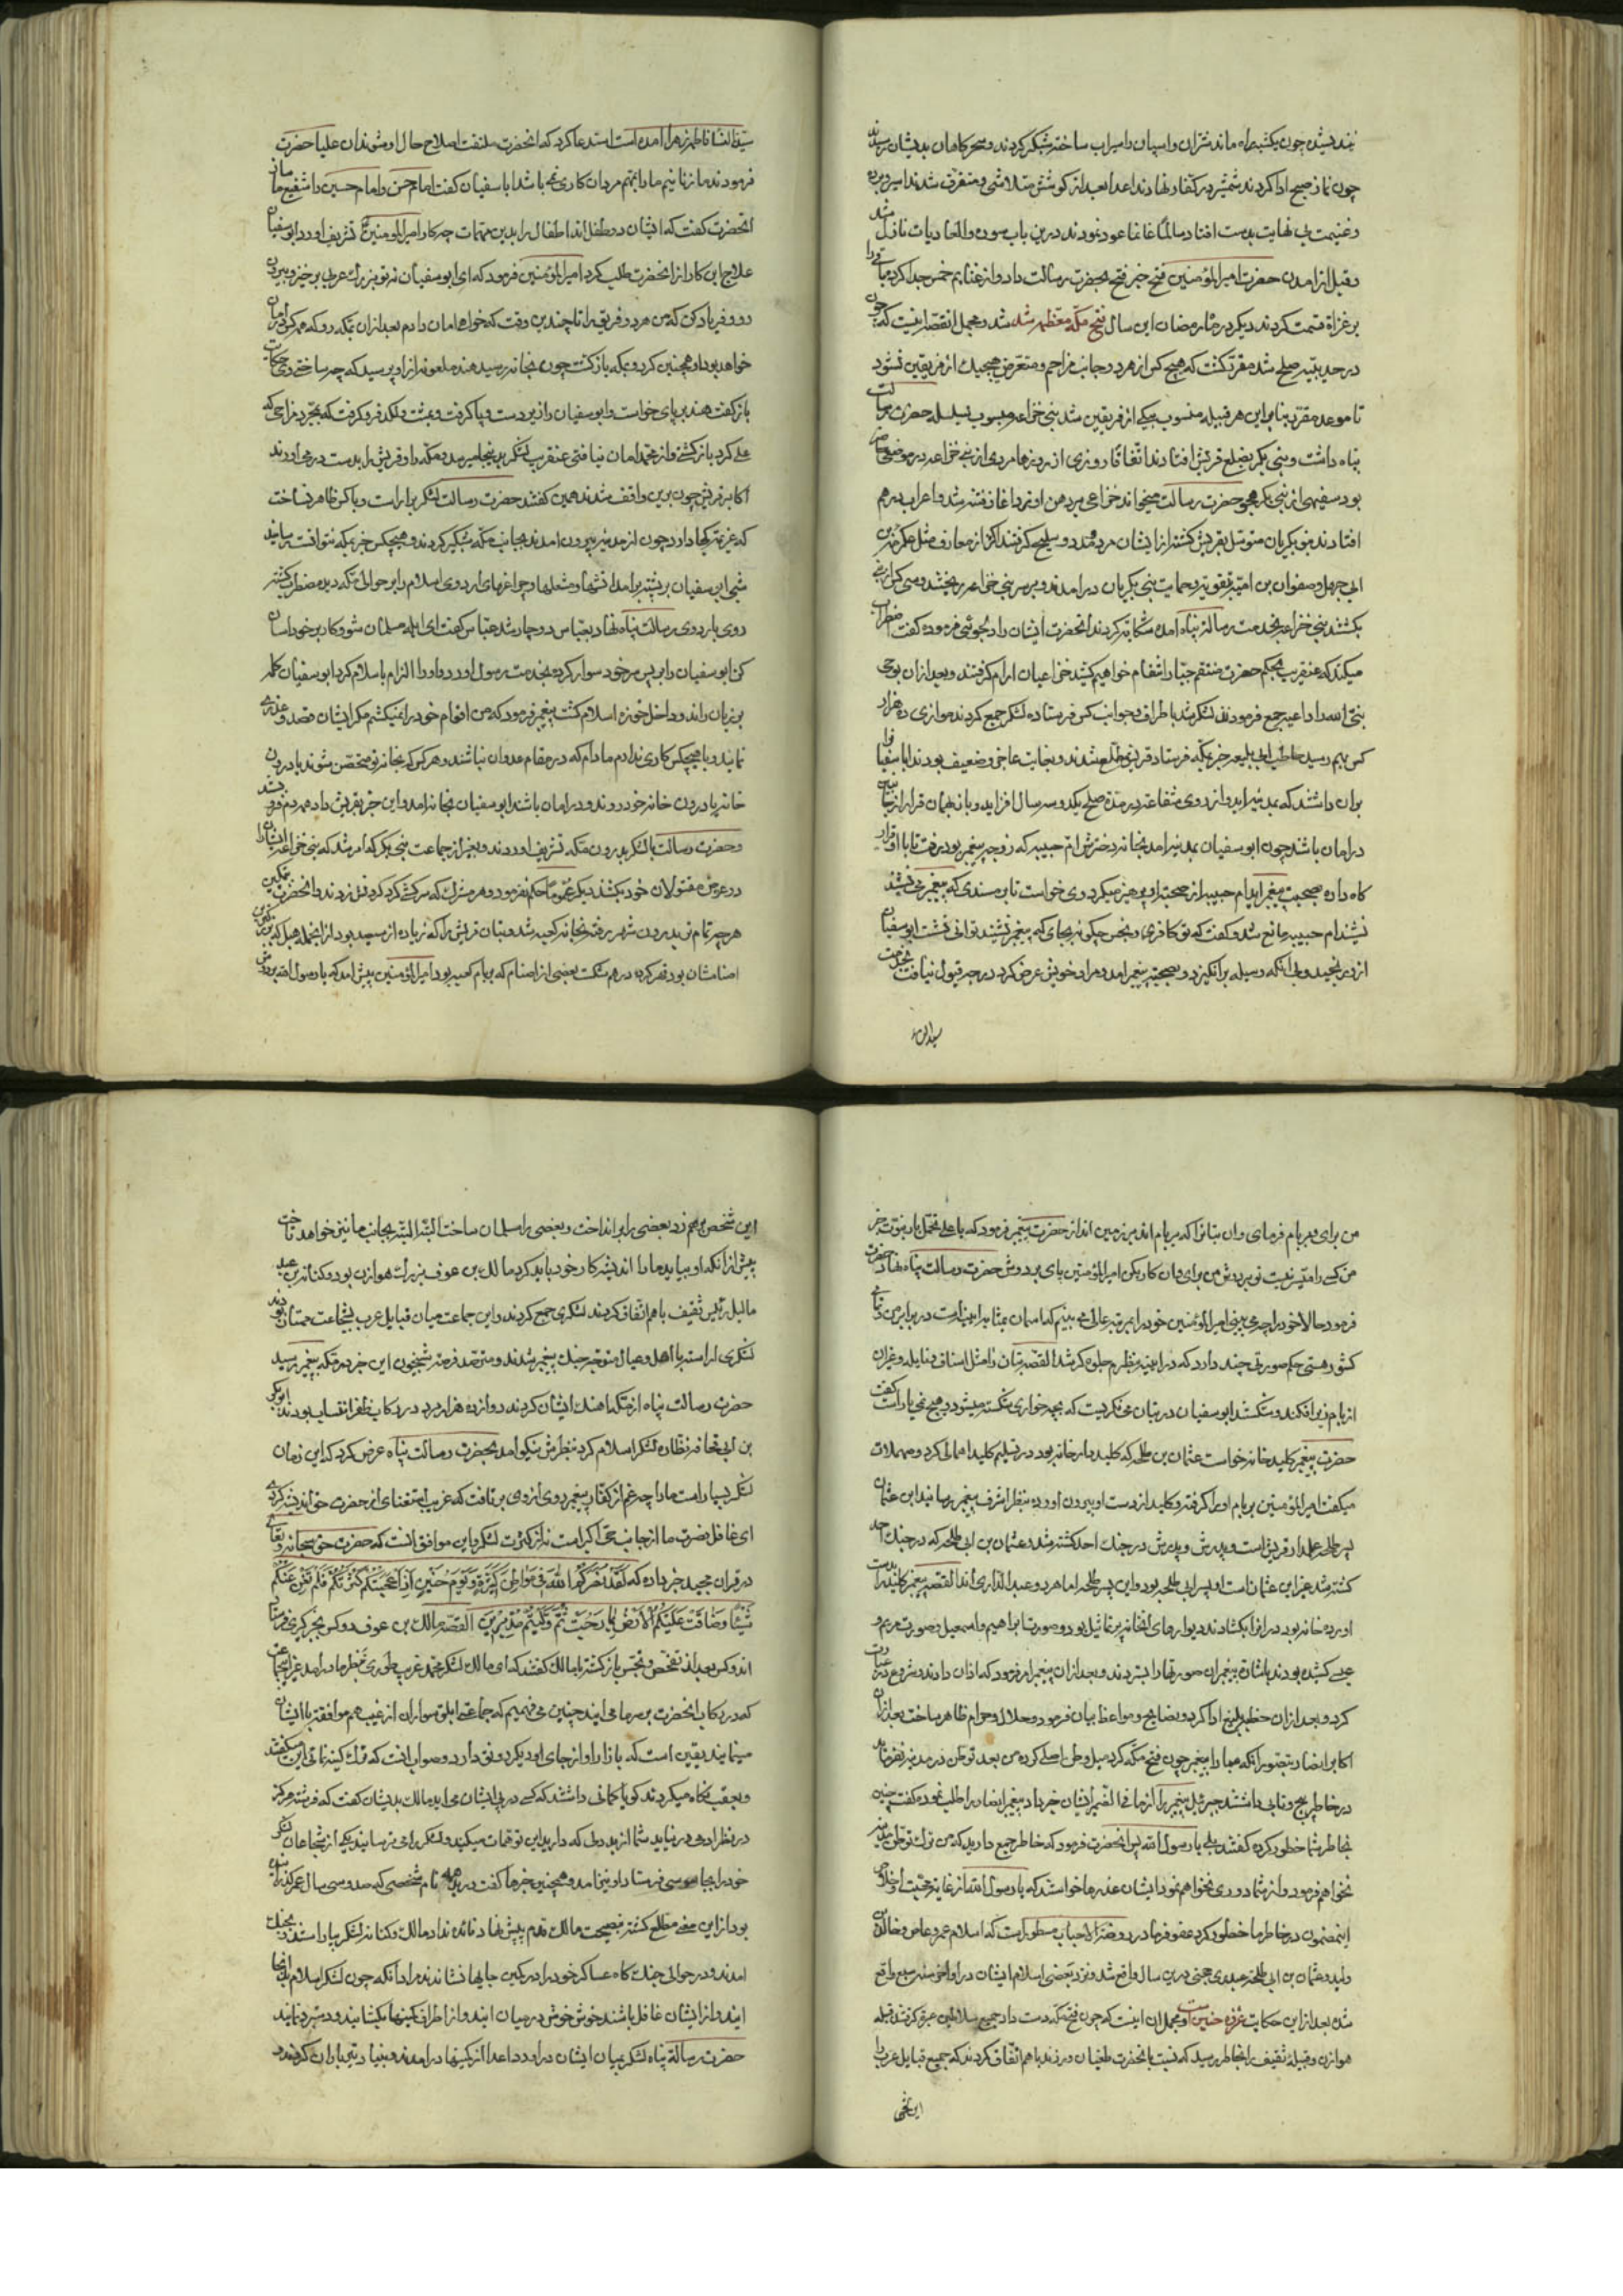 چون نماز صبح ادا کردند شمشیر در کفار نهادند اعدا بعد از کوشش متلاشی و متفرق شدند اسیر و برده
و غنیمت بی نهایت بدست افتاد سالما غانما عود نمودند درین باب سوره والعادیات نازل شد
و قبل از آمدن حضرت امیرالمؤمنین فتح خبر فتح بحضرت رسالت داد و از غنایم خمس جدا کرد باقی را
بر غزاة قسمت کردند دیگر در ماه رمضان این سال فتح مکه معظمه شد و مجمل القصه اینست که چون
در حدیبیه صلح شد مقرر گشت که هیچ کس از هر دو جانب مزاحم و متعرض هیچیک از فریقین نشود
تا موعد مقرر بنابراین هر قبیله منسوب بیکی از فریقین شد بنی خزاعه منسوب بسلسله حضرت رسالت
پناه داشت و بنی بکر بضلع قریش افتادند اتفاقا روزی از روزها مردی از بنی خزاعه در موضعی حاضر
بود سفیهی از بنی بکر هجو حضرت رسالت میخواند خزاعی برد من او زد آغاز فتنه شد و اعراب درهم
افتادند بنو بکریان متوسل بقریش گشته از ایشان مرد و مدد و سلیح گرفتند اکثر از معارف مثل عکرمه بن
ابی جهل و صفوان بن امیه بتقویه و حمایت بنی بکریان درآمدند و بر سر بنی خزاعه ریختند و سی کس از بنی
بکشتند بنی خزاعه بخدمت رسالت پناه آمده شکایت کردند آنحضرت ایشان را دلجوئی فرموده گفت اضطراب
میکنید که عنقریب بحکم حضرت منتقم جبار انتقام خواهیم کشید خزاعیان آرام گرفتند و بعد از آن بوحی
کس بهم رسید حاطب ابی بلتعه خبر بمکه فرستاد قریش مطلع شدند و بغایت عاجز و ضعیف بودند ابا سفیا
بران داشتند که بمدینه آید و از روی شفاعت در مدة صلح یکدو سه سال افزاید و بانهمان قرار از جانبین
در امان باشند چون ابو سفیان بمدینه آمد بخانه دخترش ام حبیبه که زوجه پیغمبر بود برفت تا با او قرار
گاه داده بصحبت پیغمبر آید ام حبیبه از صحبت او پرهیز میکرد وی خواست تا بر مسندی که پیغمبر می نشیند
نشیند ام حبیبه مانع شد و گفت که تو کافری و نجس چگونه بجای که پیغمبر نشیند توانی نشست ابو سفیان
از دی رنجید و بی آنکه وسیله برانگیزد و بصحبت پیغمبر آمد و مراد خویش عرض کرد درجه قبول نیافت بخدمت
سیدالنسا
سیدالنسا فاطمه زهرا آمده است استدعا کرد که آنحضرت ملتفت اصلاح حال او شوند آن علیا حضرت
فرمودند ما زنانیم ما را بمهم مردان کاری نمی باشد ابا سفیان گفت امام حسن و امام حسین را شفیع ما ساز
آنحضرت گفت که ایشان دو طفل اند اطفال را بدین مهمات چه کار امیرالمؤمنین تشریف آورد ابو سفیان
علاج این کار از آنحضرت طلب کرد امیرالمؤمنین فرمود که ای ابو سفیان نه تو بزرگ عربی برخیز و بیرون
رو و فریاد کن که من هر دو فریق را تا چندین وقت که خواهم امان دادم بعد از آن بمکه رو که همه کس در امان
خواهد بود او همچنین کرد و بمکه بازگشت چون بخانه رسید هند ملعونه از او پرسید که چه ساختی وی حکایت
بازگفت هند بر پای خواست و ابو سفیان را زیر دست و پا گرفت و بمشت و لگد فرو کرفت که بمجرد مزاحی که
علی کرد بازگشتی و از محمد امان نیافتی عنقریب لشکر بر سر ما میرسد و مکه را و قریش را بدست در می آورند
اکابر قریش چون برین واقف شدند همین گفتند حضرت رسالت لشکر بیاراست و با کس ظاهر نساخت
که عزیمت کجا دارد چون از مدینه بیرون آمدند بجانب مکه شبگیر کردند و هیچکس خبر بمکه نتوانست رسانید
شبی ابی سفیان بر پشته برآمد آتشها و مشعلها و چراغهای اردوی اسلام را بر حوالی مکه دید مضطرب گشته
روی باردوی رسالت پناه نهاد بعباس دوچار شد عباس گفت ای ابله مسلمان شو و کار بر خود آسان
کن ابو سفیان را بر پس خود سوار کرده بخدمت رسول آورد و او را الزام باسلام کرد ابو سفیان کلمه
بر زبان راند و داخل حوزه اسلام گشت پیغمبر فرمود که من اقوام خود را نمیکشم مگر ایشان قصد و غدری
نمایند و با هیچکس کاری ندارم مادام که در مقام عدوان نباشند و هر کس که بخانه تو متحصن شوند یا درون
خانه یا درون خانه خود روند و در امان باشد ابو سفیان بخانه آمد و این خبر بقریش داد
و حضرت رسالت با لشکر بدرون مکه تشریف آوردند و بغیر از جماعت بنی بکر که امر شد که بنی خزاعه ایشان را
در عوض مقتولان خود بکشند دیگر عموما حکم نفرمود و هر مشرک که سرکشی کرد گردنش زدند و آنحضرت
هر چه تمام تر بدرون شهر رفت بخانه کعبه شد و بتان قریش را که زیاده از سیصد بود از انجمله هبل که
اصنامشان بود قهر کرده درهم شکست بعضی از اصنام که بر بام کعبه بود امیرالمؤمنین پیش آمد که یا رسول الله بر دوش
من برای و بر بام فرمای و آن بتانرا که بر بام اند بر زمین انداز حضرت پیغمبر فرمود که یا علی تحمل بار نبوت جز
من کسی را میسر نیست تو بر دوش من برای و آن کار بکن امیرالمؤمنین پای بر دوش حضرت رسالت پناه نهاد حضرت
فرمود حالا خود را چه می بینی امیرالمؤمنین خود را بمرتبه عالی می بینم که آسمان بمثابه آینه است در برابر من
کشور هستی حکم صورتی چند دارد که در آینه بنظرم جلوه گر شد القصه بتان را مثل اساف و نایله و غیران
از بام بزیر افکند و شکستند ابو سفیان در بتان می نگریست که بچه خواری شکسته میشود و هیچ نمی یارست گفت
حضرت پیغمبر کلید خانه خواست عثمان بن طلحه که کلیددار خانه بود در تسلیم کلید اهمالی کرد و مهملات
میگفت امیرالمؤمنین بر بام او را گرفته و کلید از دست او بیرون آورده بنظر اشرف پیغمبر رسانید این عثمان
پسر طلحه علمدار قریش است و پدرش در جنگ احد کشته شد و عثمان بن ابی طلحه که در جنگ احد
کشته شد غیر این عثمان است او پسر ابی طلحه بود و این پسر طلحه اما هر دو عبدالداری اند القصه پیغمبر کلید را بدست
آورده خانه بود در انرا بگشادند دیوارهای آنخانه پر تماثیل بود و صورت ابراهیم و اسمعیل و صورت مریم و
عیسی کشیده بودند باشارة پیغمبران صورتها را ستردند و بعد از آن پیغمبر امر فرمود که اذان دادند و شروع در عبادت
کرد و بعد از آن خطبه بلیغ ادا کرد و نصایح و مواعظ بیان فرمود و حلال و حرام ظاهر ساخت بعد از آن
اکابر انصار بتصور آنکه مبادا پیغمبر چون فتح مکه کرد میل وطن اصلی کرده من بعد توطن در مدینه نفرماید
در خاطر رنج و تابی داشتند جبرئیل پیغمبر را از ما فی الضمیر ایشان خبر داد پیغمبر انصار را طلب نمود و گفت چنین
بخاطر شما خطور کرده گفتند بلی یا رسول الله پس آنحضرت فرمود که خاطر جمع دارید که من ترک توطن مدینه
نخواهم فرمود و از شما دوری نخواهم نمود ایشان عذرها خواستند که یا رسول الله از غایت محبت و اخلاص
این مضمون در خاطر ما خطور کرد عفو فرما در روضة الاحباب مسطور است که اسلام عمرو عاص و خالد بن
ولید و عثمان بن ابی طلحه عبدری حجبی درین سال واقع شد و نزد بعضی اسلام ایشان در اواخر سنه سبع واقع
شد بعد ازین حکایت غزوه حنین است و مجمل آن اینست که چون فتح مکه دست داد جمیع سلاطین عبرت گرفتند قبیله
هوازن و قبیله ثقیف را بخاطر رسید که نسبت بانحضرت طغیان ورزند باهم اتفاق کردند که جمیع قبایل عرب را
این شخص
این شخص برهم زد بعضی را برانداخت و بعضی را مسلمان ساخت البته البته بجانب ما نیز خواهد تاخت
پیش از آنکه او بیاید ما را اندیشه کار خود باید کرد مالک بن عوف بزرگ هوازن بود و کنانه بن عبد
یالیل رئیس ثقیف باهم اتفاق کردند لشکری جمع کردند و این جماعت میان قبایل عرب بشجاعت ممتاز بودند
لشکری آراسته با اهل و عیال متوجه جنگ پیغمبر شدند و مترصد فرصت شبیخون این خبر در مکه به پیغمبر رسید
حضرت رسالت پناه از مکه آهنگ ایشان کردند دوازده هزار مرد در رکاب ظفر انتساب بودند ابوبکر
بن ابی قحافه نظاره لشکر اسلام کرد بنظرش نیکو آمد بحضرت رسالت پناه عرض کرد که این زمان
لشکر بسیار است ما را چه غم از کفار پیغمبر روی از وی برتافت که عریب استغنای از حضرت حق اندیشه کردی
ای غافل نصرت ما از جانب حق تعالی است نه از کثرت لشکر و این موافق آنست که حضرت حق سبحانه و تعالی
در قرآن مجید خبر داده که لَقَدْ نَصَرَكُمُ اللَّهُ فِي مَوَاطِنَ كَثِيرَةٍ وَيَوْمَ حُنَيْنٍ إِذْ أَعْجَبَتْكُمْ كَثْرَتُكُمْ فَلَمْ تُغْنِ عَنْكُمْ
شَيْئًا وَضَاقَتْ عَلَيْكُمُ الْأَرْضُ بِمَا رَحُبَتْ ثُمَّ وَلَّيْتُمْ مُدْبِرِينَ القصه مالک بن عوف دو کس بخبرگیری فرستاد
آن دو کس بعد از تفحص و تجسس بازگشته با مالک گفتند که ای مالک لشکر محمد غریب طوری بنظر ما درآمد غیر از جماعت
که در رکاب آنحضرت بر سر ما می آیند چنین می فهمیم که جماعتی ابلق سواران از غیب هم موافقت با ایشان
مینمایند یقین است که بازار او از جای دیگر رونق دارد و صواب آنست که ترک کینه نمائی این میگفتند
و بعقب نگاه میکردند گویا گمانی داشتند که کسی در پی ایشان می آید مالک بدیشان گفت که فرشته هرگز
در نظر آدمی در نیاید شما از بددلی که دارید این توهمات میکنید و لشکر را می ترسانید یکی از شجاعان لشکر
خود را بجاسوسی فرستاد او نیز آمد و همچنین خبرها گفت درید نام شخصی که صد و سی سال عمر گذرانیده
بود ازین معنی مطلع گشته نصیحت مالک قدم پیش نهاد فائده نداد مالک و کنانه لشکر بیاراستند و بجنگ
آمدند و در حوالی جنگ گاه عساکر خود را در کمین جایها نشاندند مراد آنکه چون لشکر اسلام آنجا
آیند و از ایشان غافل باشند خوش خوش در میان آیند و از اطراف کمینها بگشایند و دستبرد نمایند
حضرت رسالة پناه لشکر بمیان ایشان درآورد اعدا از کمینها درآمدند و بنیاد تیرباران کردند